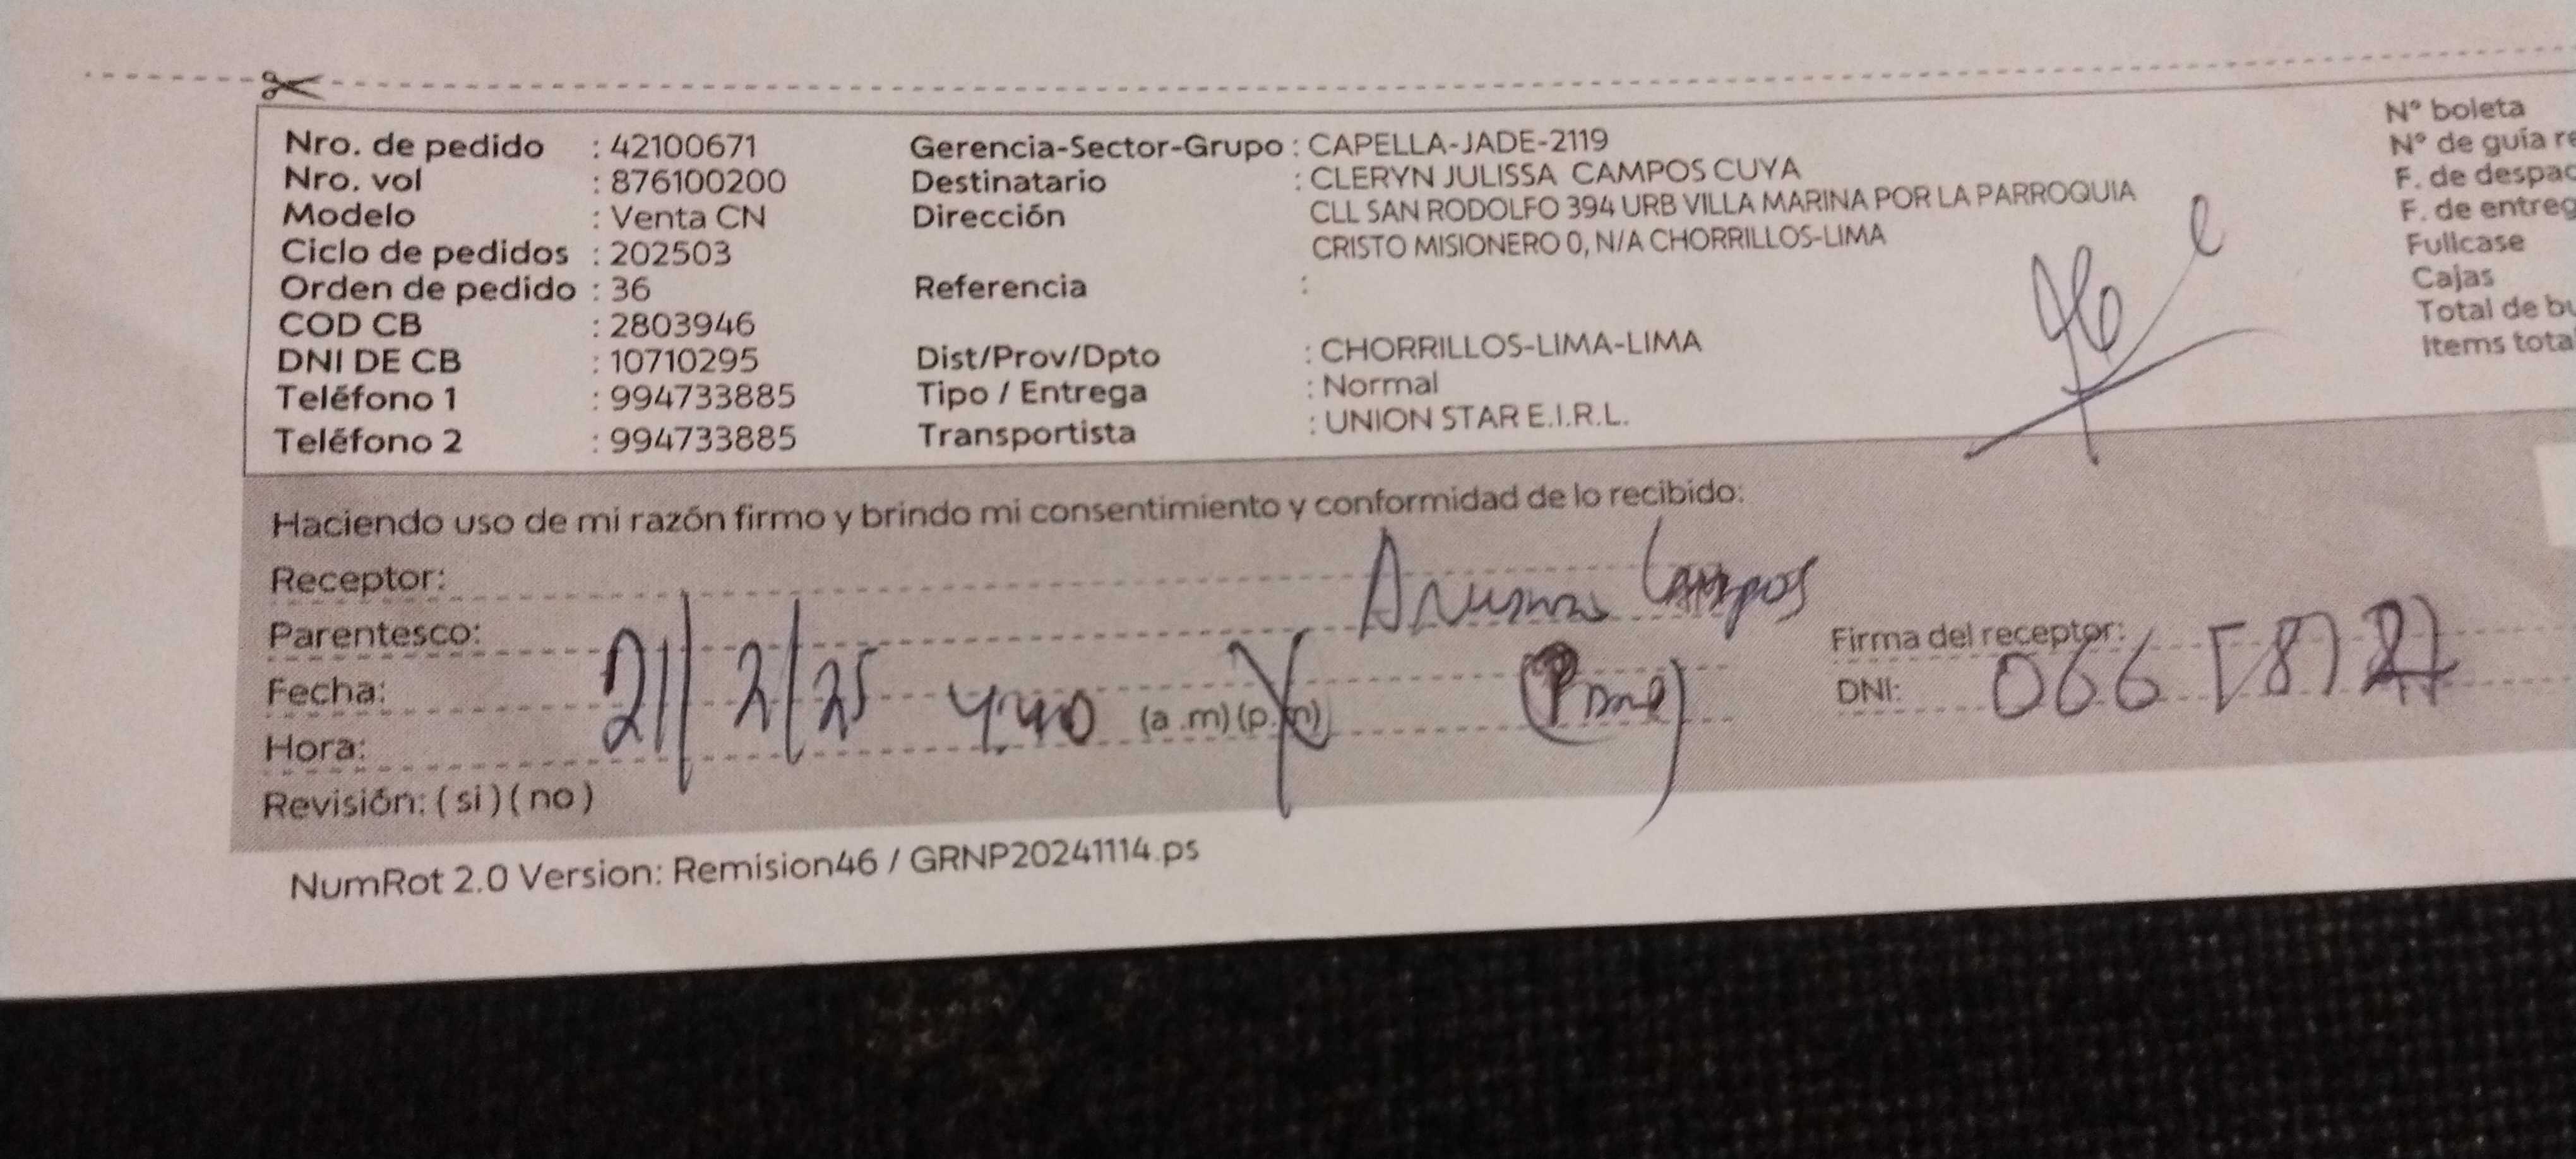 Nro. de pedido : 42100671 Gerencia-Sector-Grupo : CAPELLA-JADE-2119 N° boleta
Nro. vol : 876100200 Destinatario : CLERYN JULISSA CAMPOS CUYA N° de guía re
Modelo : Venta CN Dirección CLL SAN RODOLFO 394 URB VILLA MARINA POR LA PARROQUIA F. de despac
Ciclo de pedidos : 202503 CRISTO MISIONERO 0, N/A CHORRILLOS-LIMA F. de entreg
Orden de pedido : 36 Referencia : Fullcase
COD CB : 2803946 Cajas
DNI DE CB : 10710295 Dist/Prov/Dpto : CHORRILLOS-LIMA-LIMA Total de bu
Teléfono 1 : 994733885 Tipo / Entrega : Normal Items tota
Teléfono 2 : 994733885 Transportista : UNION STAR E.I.R.L.
Haciendo uso de mi razón firmo y brindo mi consentimiento y conformidad de lo recibido:
Receptor: Campos
Parentesco: Firma del receptor:
Fecha: 21/2/25 DNI:
Hora: 4:40 (a.m) (p.m)
Revisión: (si) (no)
NumRot 2.0 Version: Remision46 / GRNP20241114.ps